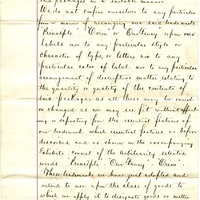 We do not confine ourselves to any particular
form or manner of arranging our said trademark
"Principle" "Coin" or Our Penny upon our
labels nor to any particular style or
character of type, or letters nor to any
particular color of label nor to any particular
arrangement of descriptive matter relating to
the quantity or quality of the contents of
said packages as all these can be varied
or changed as we may see fit without affect-
ing or departing from the essential features of
our trademark which essential features is before
described and as shown in the accompanying
Exhibits consist of the arbitrarily selected
words "Principle" "Our Penny" "Coin"
These trademarks we have just adopted and
intend to use upon the class of goods to
which we apply it to designate goods or matter